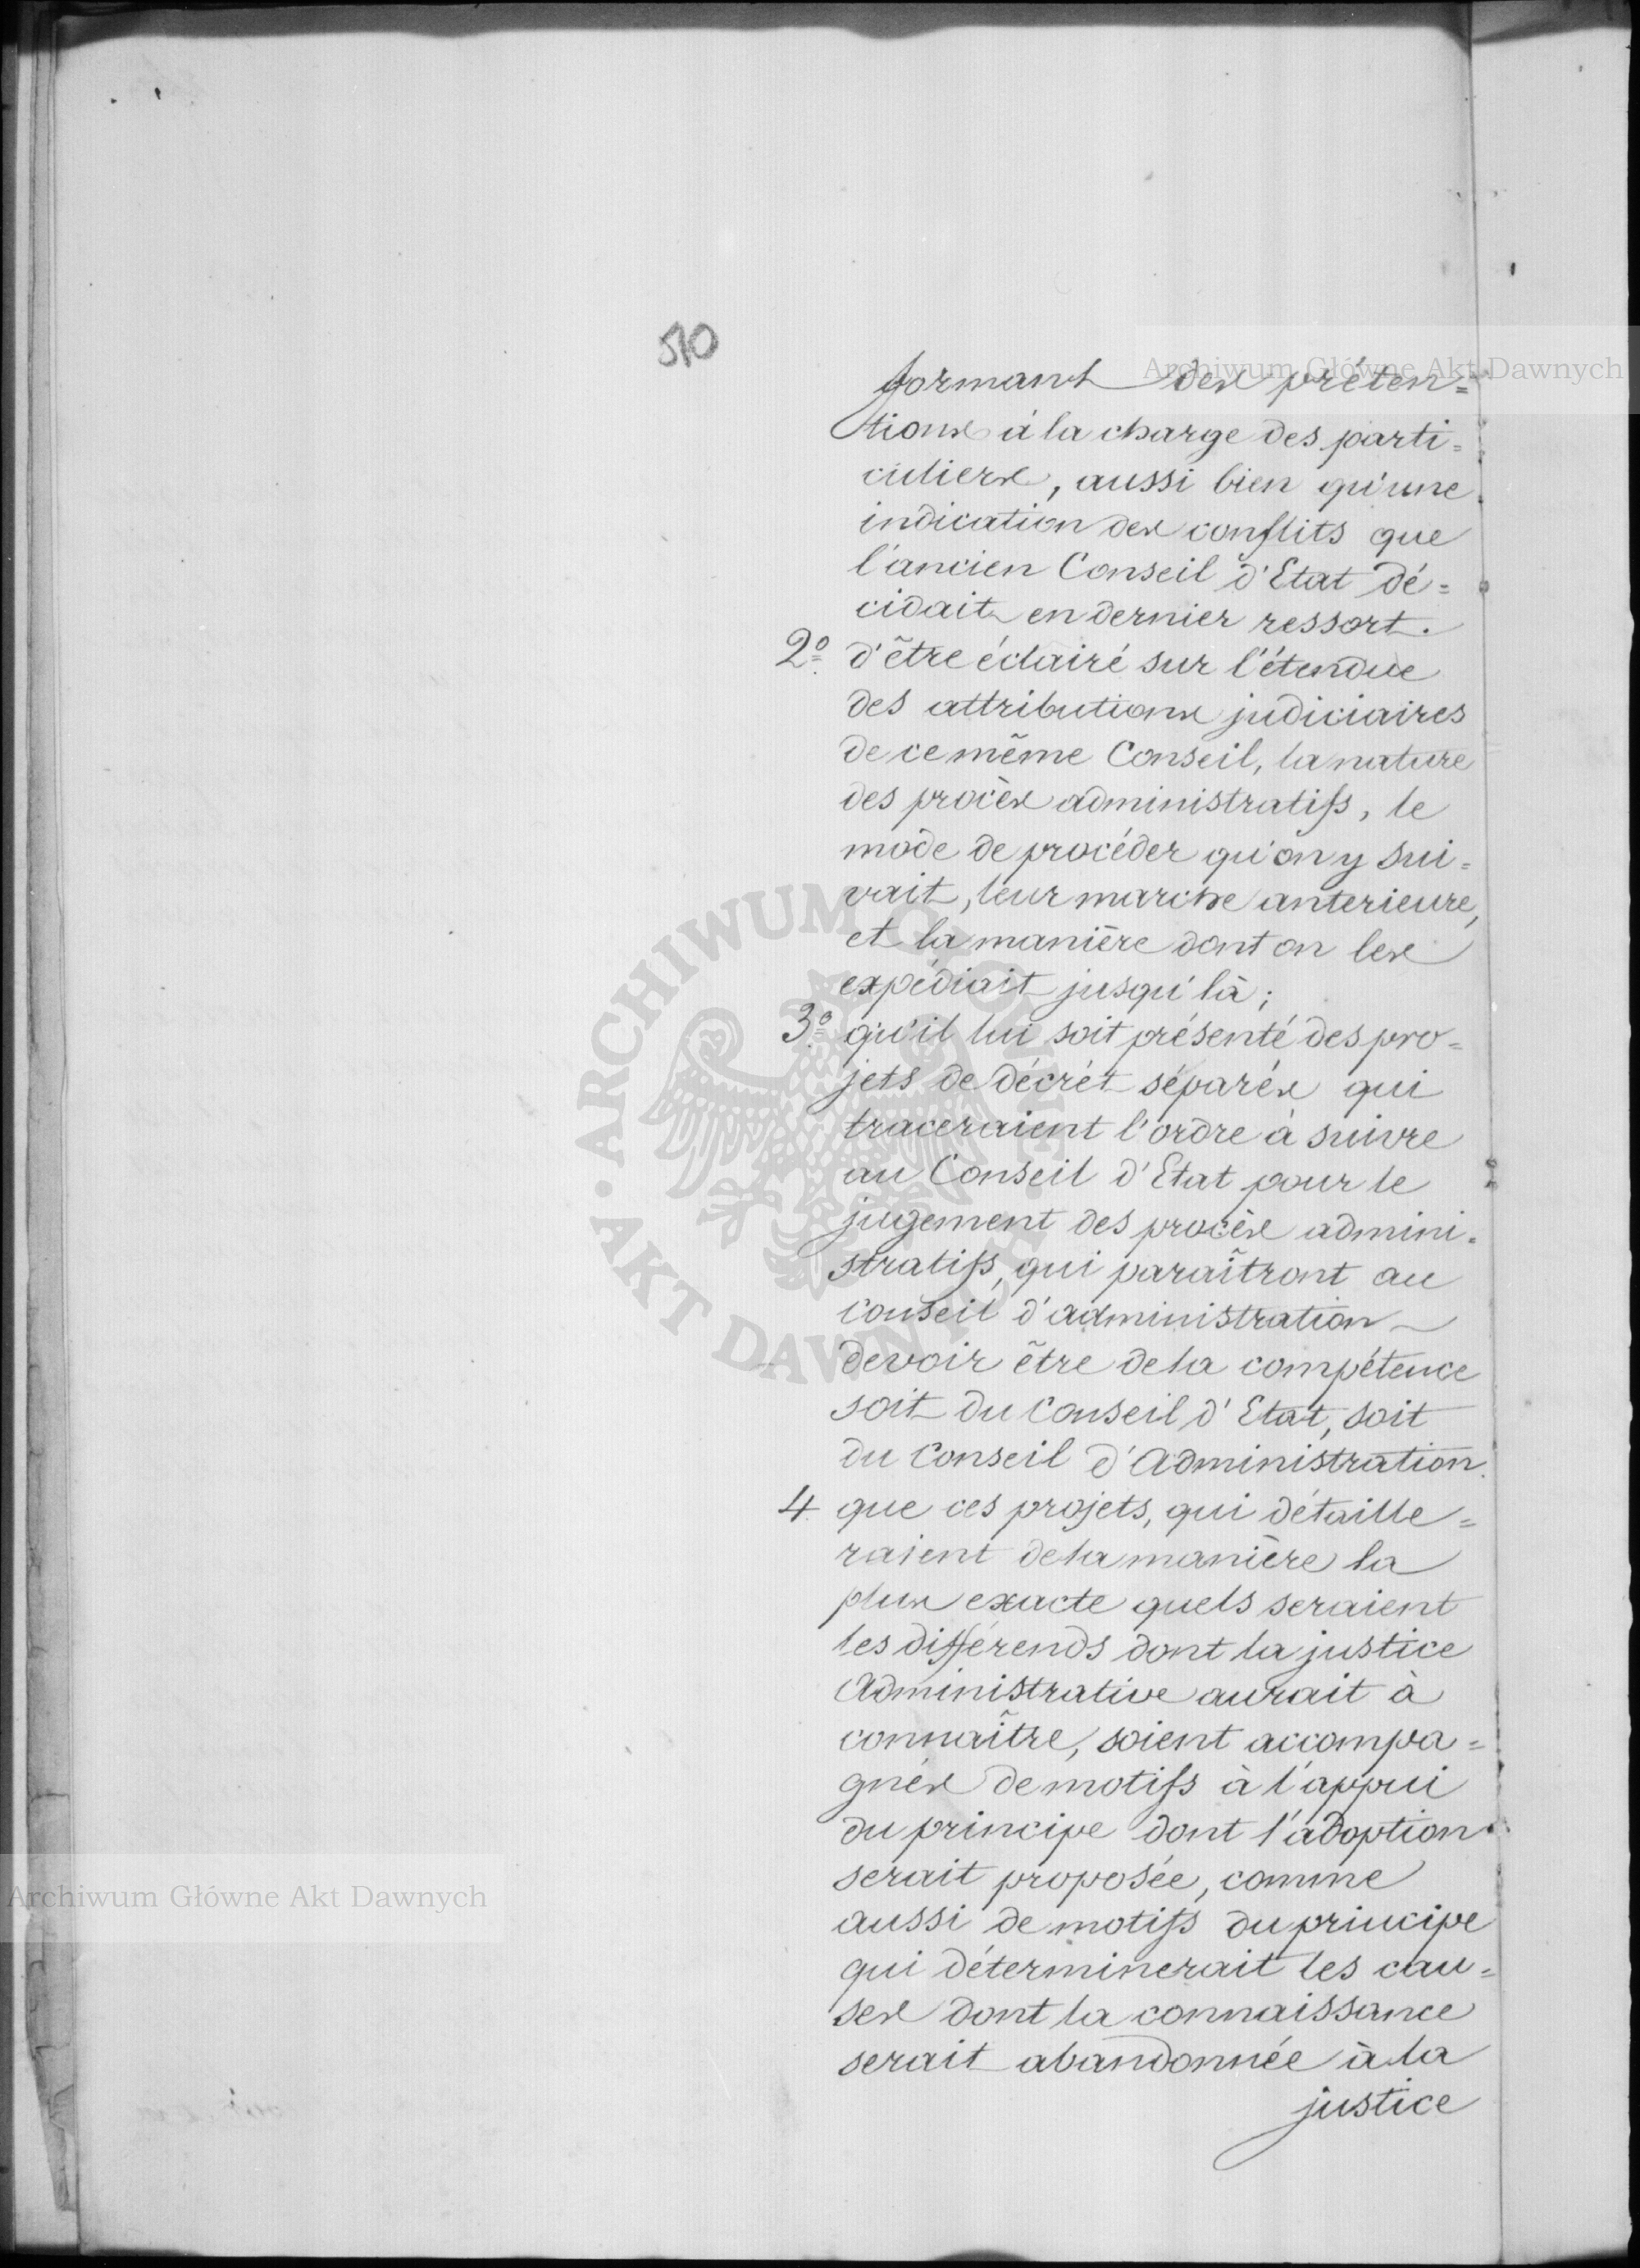 510
formant des préten=
tions à la charge des parti=
culiers, aussi bien qu'une
indication des conflits que
l'ancien Conseil d'Etat dé=
cidait en dernier ressort.
2º d'être éclairé sur l'étendue
des attributions judiciaires
de ce même Conseil, la nature
des procès administratifs, le
mode de procéder qu'on y sui=
vait, leur marche anterieure,
et la manière dont on les
expédiait jusqu'là;
3º qu'il lui soit présenté des pro=
jets de décrét séparés qui
traceraient l'ordre à suivre
au Conseil d'Etat pour le
jugement des procès admini=
stratifs, qui paraîtront au
Conseil d'administration
devoir être de la compétence
soit du Conseil d'Etat, soit
du Conseil d'Administration.
4. que ces projets, qui détaille=
raient de la manière la
plus exacte quels seraient
les différends dont la justice
Administrative aurait à
connaître, soient accompa=
gnés de motifs à l'appui
du principe dont l'adoption
serait proposée, comme
aussi de motifs du principe
qui déterminerait les cau=
ses dont la connaissance
serait abandonnée à la
justice
Archiwum Główne Akt Dawnych
ARCHIWUM GŁÓWNE AKT DAWNYCH
Archiwum Główne Akt Dawnych